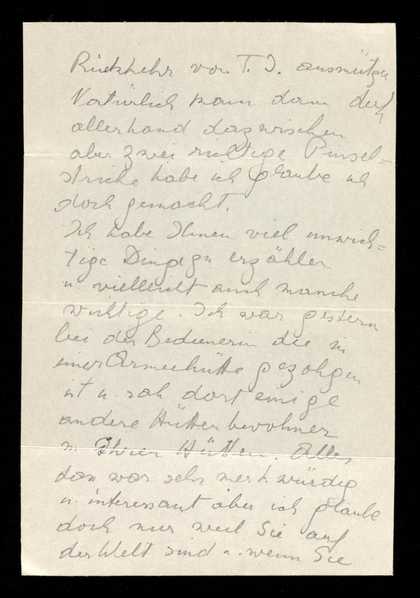 Rückkehr von T. I. ausnützen
Natürlich kam dann doch
allerhand dazwischen
aber zwei richtige Pinsel=
striche habe ich glaube ich
doch gemacht.
Ich habe Ihnen viel unwich=
tige Dinge zu erzählen
u vielleicht auch manche
wichtige. Ich war gestern
bei der Bedienerin die in
einer Armeehütte gezohgen
ist u. sah dort einige
andere Hüttenbewohner
in Ihren Hütten. Alles
das war sehr merkwürdig
u. interessant aber ich glaube
doch nur weil Sie auf
der Welt sind u. wenn Sie